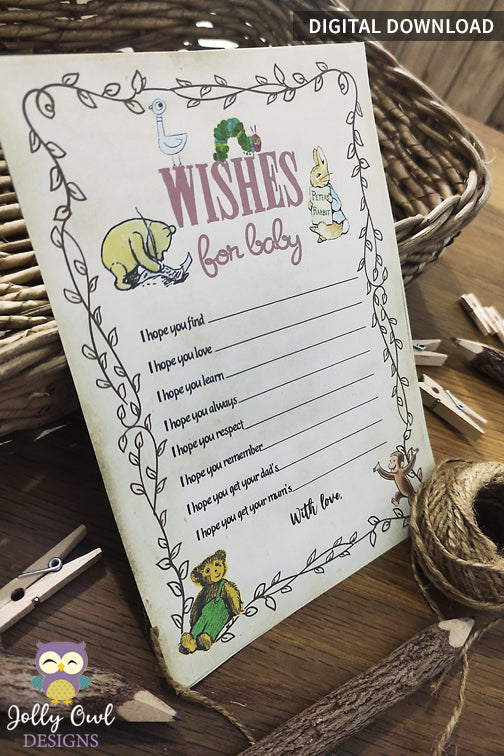 DIGITAL DOWNLOAD
WISHES
for baby
PETER
RABBIT
I hope you find
I hope you love
I hope you learn
I hope you always
I hope you respect
I hope you remember
I hope you get your dad's
I hope you get your mum's
With love,
Jolly Owl
DESIGNS